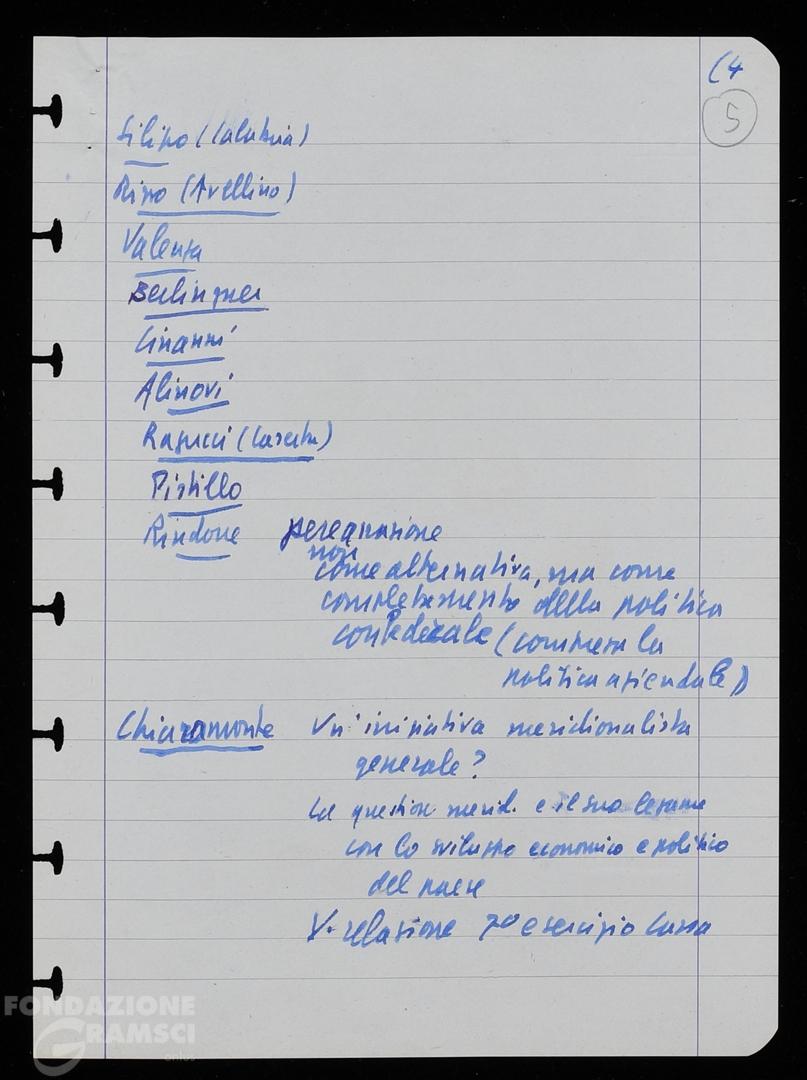 (4
5
Silipo (Calabria)
Rizzo (Avellino)
Valenza
Berlinguer
Cinanni
Alinovi
Ragucci (Caserta)
Pistillo
Rindone perequazione
non
come alternativa, ma come
completamento della politica
confederale (compresa la
politica aziendale)
Chiaromonte Un'iniziativa meridionalista
generale?
La question merid. e il suo legame
con lo sviluppo economico e politico
del paese
V. relazione 7º esercizio Cassa
FONDAZIONE
GRAMSCI
onlus